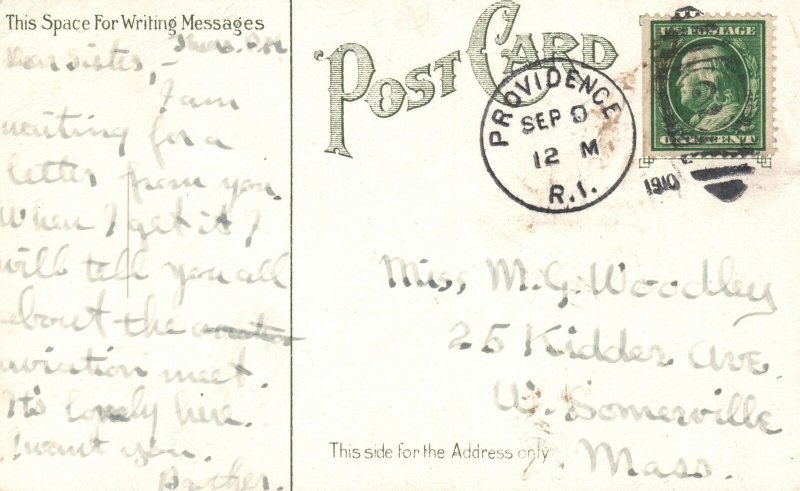 This Space For Writing Messages
Thurs. P.M.
Dear Sister, –
I am
waiting for a
letter from you.
When I get it I
will tell you all
about the
aviation meet.
It's lonely here.
I want you.
POST CARD
PROVIDENCE
SEP 9
12 M
R.I.
1910
U.S. POSTAGE
ONE CENT
Miss M. G. Woodley
25 Kidder Ave.
W. Somerville
Mass.
This side for the Address only